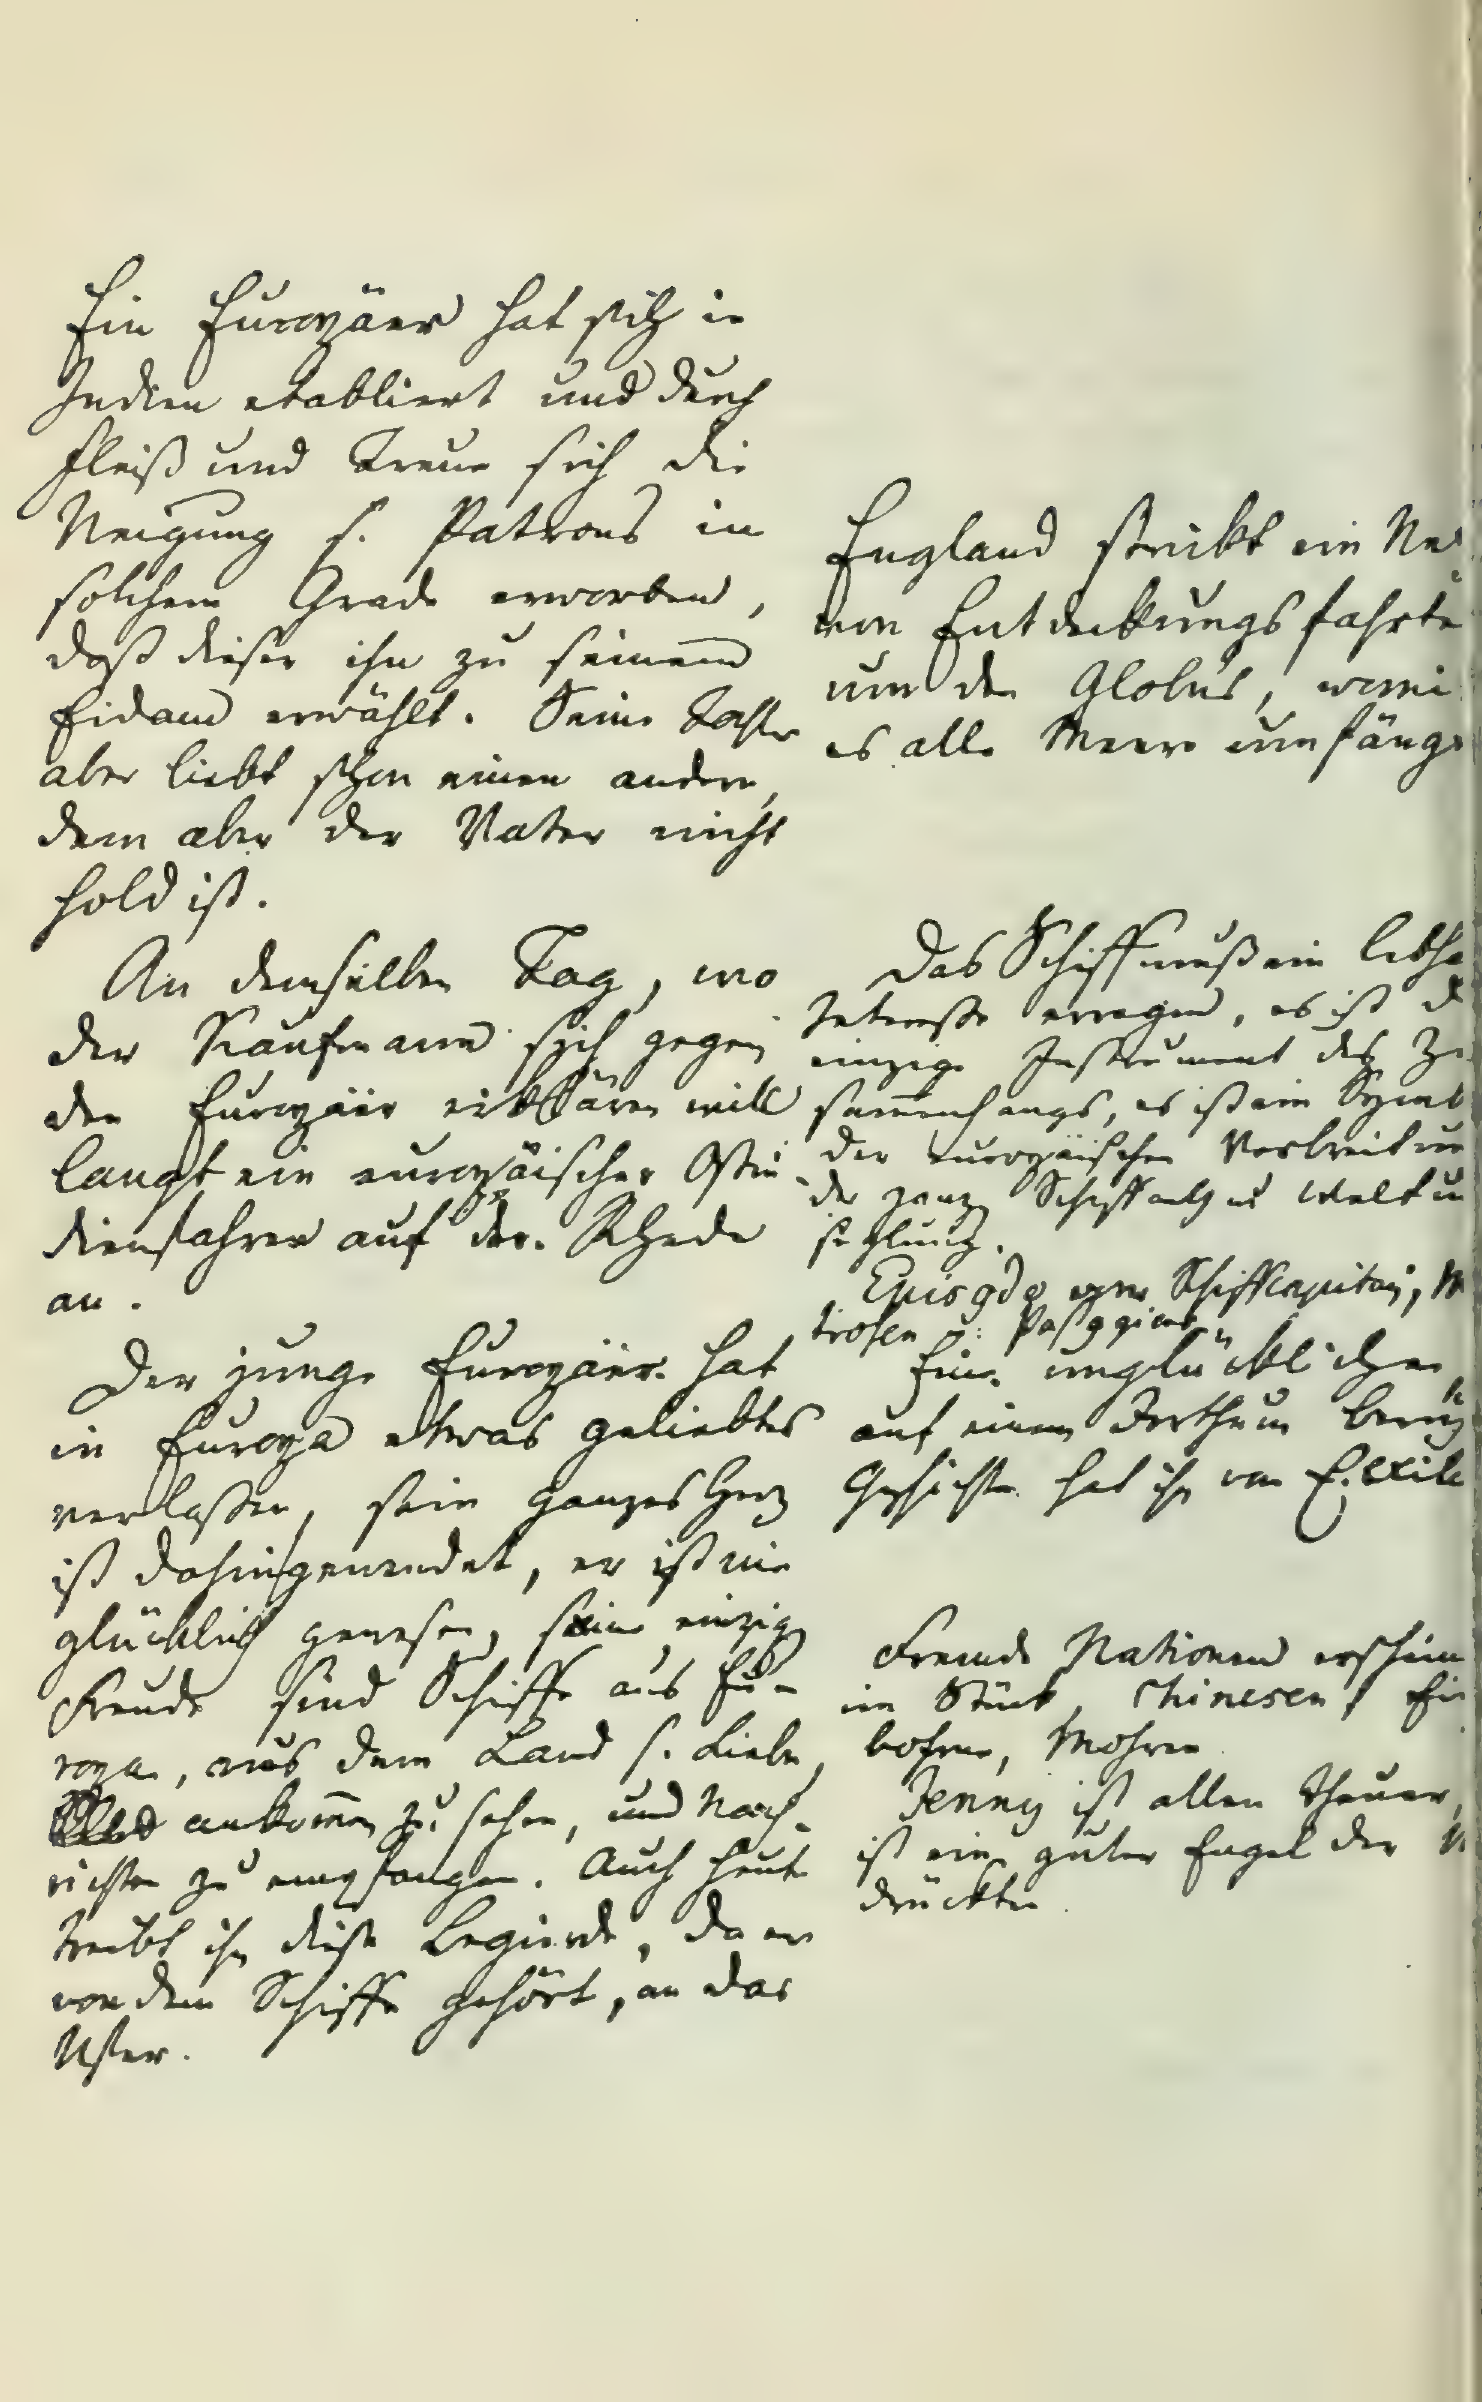 Ein Europäer hat sich in
Indien etabliert und durch
Fleiß und Treue sich die
Neigung s. Patrons in
solchem Grade erworben,
daß dieser ihn zu seinem
Eidam erwählt. Seine Tochter
aber liebt schon einen andern,
dem aber der Vater nicht
hold ist.
An demselben Tag, wo
der Kaufmann sich gegen
den Europäer erklären will
langt ein europäischer Ostin-
dienfahrer auf der Rhede
an.
Der junge Europäer hat
in Europa etwas geliebtes
verlaßen, sein ganzes Herz
ist dahingewendet, er ist nie
glücklich gewesen, seine einzige
Freude sind Schiffe aus Eu-
ropa, aus dem Land s. Liebe,
ankommen zu sehen, und Nach-
richten zu empfangen. Auch heute
treibt ihn diese Begierde, da er
von dem Schiffe gehört, an das
Ufer.
England strickt ein Ne
von Entdeckungsfahrte
um den Globus, womi
es alle Meere umfängt
Das Schiff muß ein lebha
Intereße erregen, es ist d
einzige Instrument des Zu
sammenhangs, es ist ein Symb
der europäischen Verbreitun
der ganzen Schiffarth und Weltum
seglung.
Episode vom Schiffcapitain, M
trosen u: Paßagiers
Eine unglückliche
auf einem Irrthum beruh
Geschichte hat ihn von E. exili
Fremde Nationen erschein
im Stück, Chinesen, Ein
bohrne, Mohren
Jenny ist allen theuer,
ist ein guter Engel der
drückten